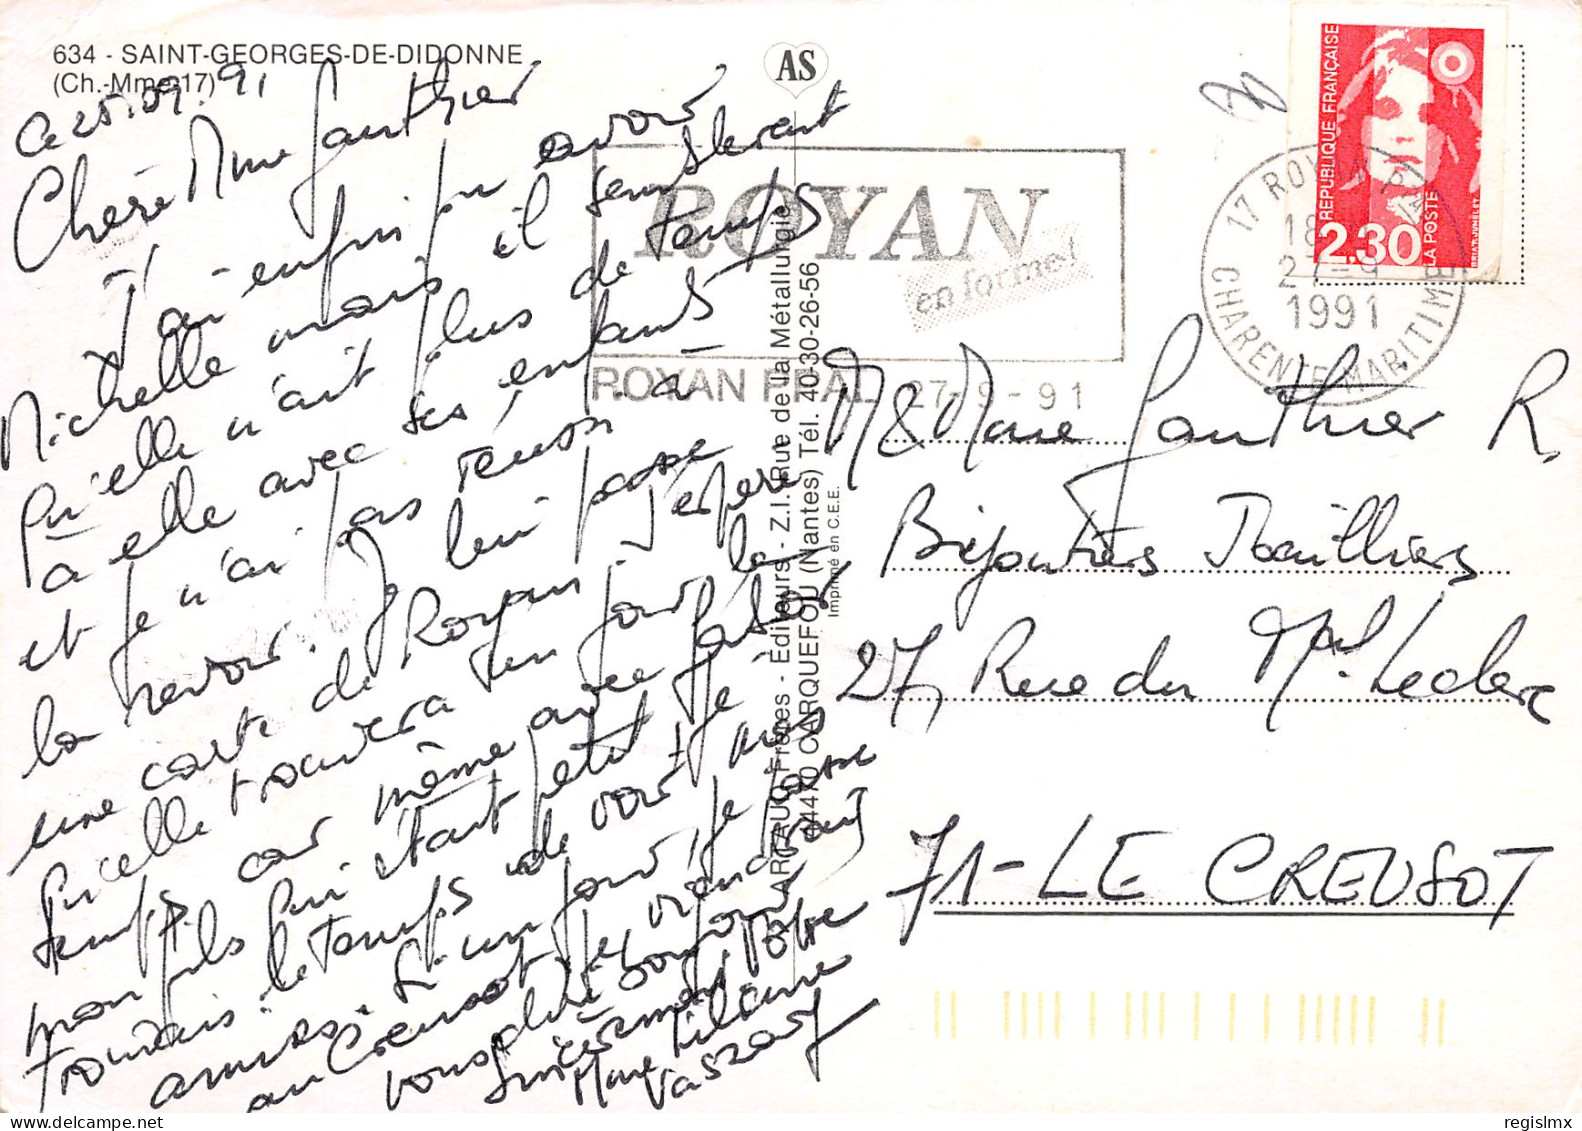 634 - SAINT-GEORGES-DE-DIDONNE
(Ch.-Mme-17)
Ce 25.09.91
Chère Mme Gauthier
J'ai enfin pu avoir
Michelle mais il semblerait
qu'elle n'ait plus de temps
à elle avec ses enfants
et je n'ai pas réussi à
la revoir. Je lui passe
une carte de Royan. J'espère
qu'elle trouvera un jour le
temps car même avec
mon fils qui était petit je
trouvais le temps de voir mes
amies. Si un jour je passe
au Creusot je viendrais
vous dire bonjour
Sincèrement Votre
Mme Liliane
Vaszary
AS
ARTAUD Frères - Éditeurs - Z.I. Rue de la Métallurgie
44470 CARQUEFOU (Nantes) Tél. 40-30-26-56
Imprimé en C.E.E.
ROYAN
en forme!
ROYAN PPAL 27-9-91
RÉPUBLIQUE FRANÇAISE
2,30
LA POSTE
BRIAT-JUMELET
17 ROYAN PPAL
18
27-9
1991
CHARENTE MARITIME
M & Mme Gauthier R.
Bijoutiers Joailliers
27, Rue du Mal Leclerc
71-LE CREUSOT
regislmx